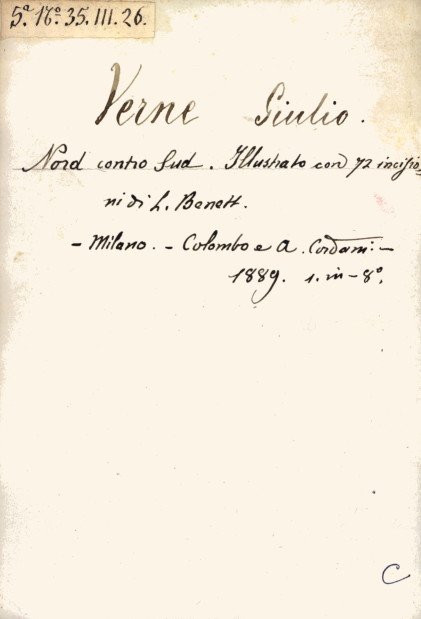 5ª 16º 35. III. 26.
Verne Giulio.
Nord contro Sud. Illustrato con 72 incisio=
ni di L. Benett.
- Milano. - Colombo e A. Cordani: -
1889. 1. in-8º.
C